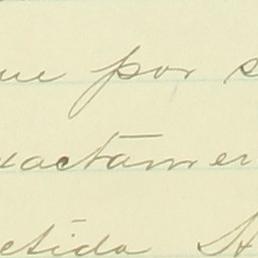 ue por s
xactamer
etida